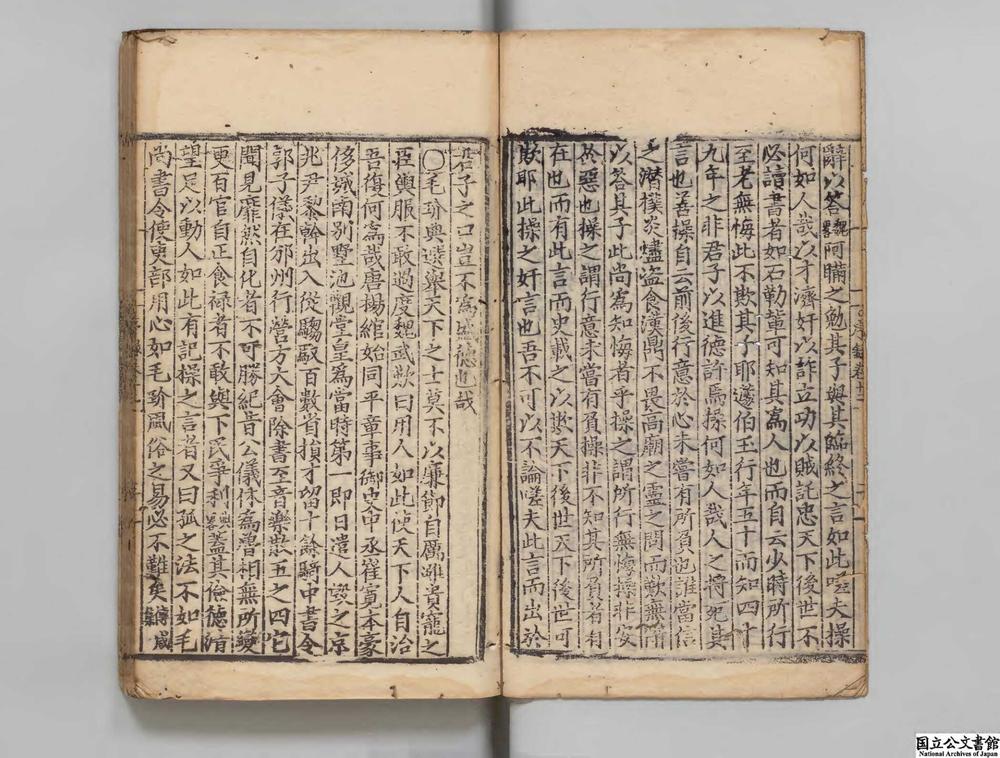 辭以答魏畧阿瞞之勉其子與其臨終之言如此嗟夫操
何如人哉以才濟奸以詐立功以賊託忠天下後世不
必讀書者如石勒輩可知其爲人也而自云少時所行
至老無悔此不欺其子耶蘧伯玉行年五十而知四十
九年之非君子以進德許焉操何如人哉人之將死其
言也善操自云前後行意於心未嘗有所負也誰當信
之潜樸炎燼盜食漢鼎不畏高廟之靈之問而歎無情
以答其子此尚爲知悔者乎操之謂所行無悔操非安
於惡也操之謂行意未嘗有負操非不知其所負者有
在也而有此言而史載之以欺天下後世天下後世可
欺耶此操之奸言也吾不可以不論嗟夫此言而出於
君子之口豈不爲盛德也哉
○毛玠典選舉天下之士莫不以廉節自厲雖貴寵之
臣輿服不敢過度魏武歎曰用人如此使天下人自治
吾復何爲哉唐楊綰始同平章事御史中丞崔寬本豪
侈城南別墅池觀堂皇爲當時第一即日遣人毀之京
兆尹黎幹出入從騶馭百數省損才留十餘騎中書令
郭子儀在邠州行營方大會除書至音樂散五之四它
聞見靡然自化者不可勝紀昔公儀休爲魯相無所變
更百官自正食祿者不敢與下民爭利蓋其儉德績
望足以動人如此有記操之言者又曰孤之法不如毛
尚書令使吏部用心如毛玠風俗之易必不難矣傅咸
國立公文書館
National Archives of Japan